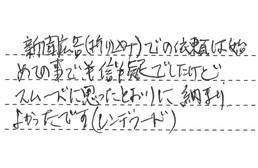 新聞広告(折り込み)での依頼は始
めての事で半信半疑でしたけど
スムーズに思ったとおりに納まり
よかったです(レンジフード)